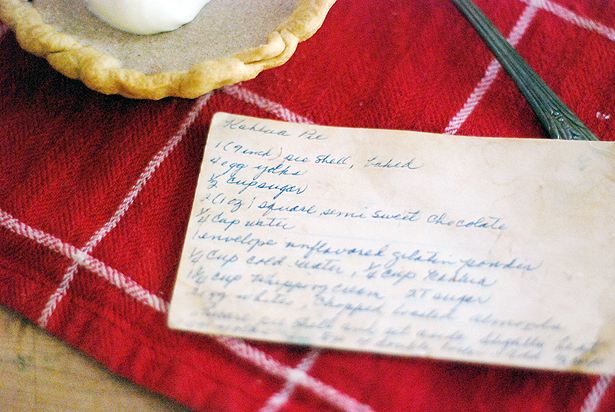 Kahlua Pie
1 (9 inch) pie shell, baked
4 egg yolks
½ cup sugar
(1 oz) square semi sweet chocolate
¼ cup water
1 envelope unflavored gelatin powder
¼ cup cold water, ¼ cup Kahlua
cup whipping cream 2T sugar
egg whites Chopped toasted almonds
pie shell and set aside. Slightly
of double